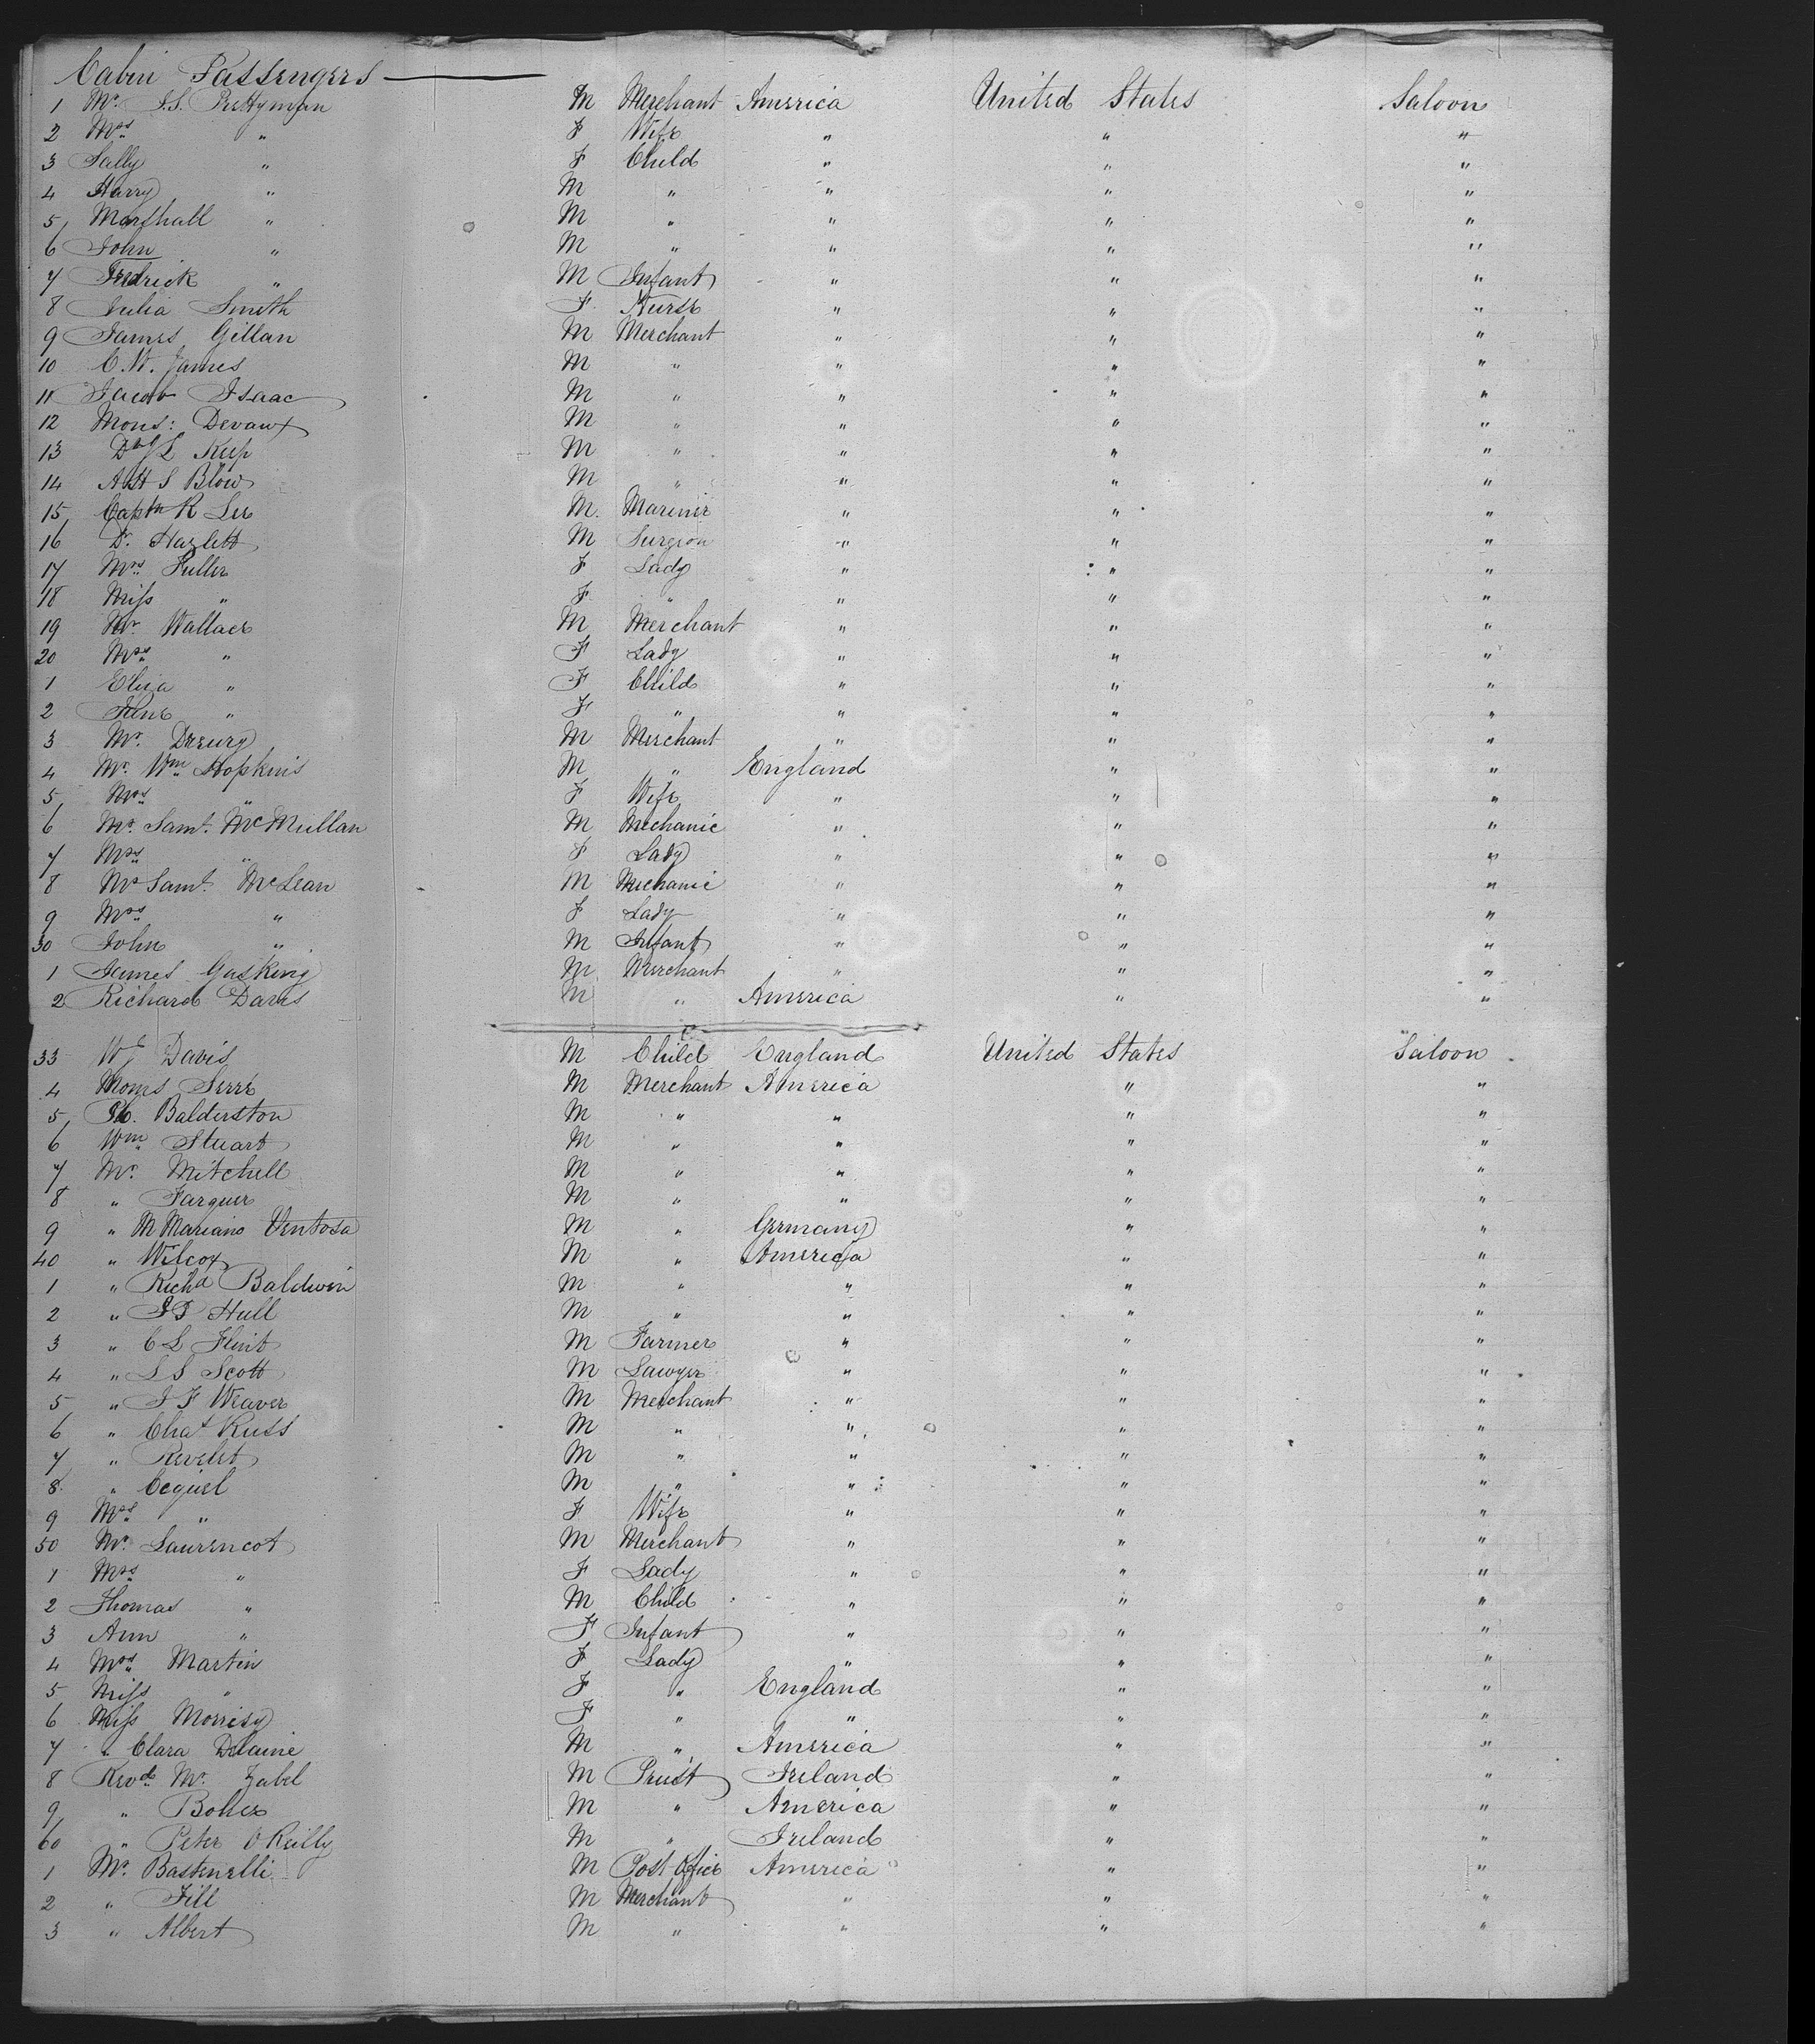 Cabin Passengers
1 Mr. S.S. Prettyman M Merchant America United States Saloon
2 Mrs " F Wife " " "
3 Sally " F Child " " "
4 Harry " M " " " "
5 Marshall " M " " " "
6 John " M " " " "
7 Fredrick " M Infant " " "
8 Julia Smith F. Nurse " " "
9 James Gillan M Merchant " " "
10 C.W. James M " " " "
11 Jacob Isaac M " " " "
12 Mons: Devaux M " " " "
13 L Keep M " " " "
14 A H S Blow M " " " "
15 Captn R Lee M. Mariner " " "
16 Dr. Hazlett M Surgeon " " "
17 Mrs Fuller F Lady " " "
18 Miss " F " " " "
19 Mr. Wallace M Merchant " " "
20 Mrs " F Lady " " "
1 Eliza " F Child " " "
2 " F " " " "
3 Mr. Dreury M Merchant " " "
4 Mr. Wm Hopkins M " England " "
5 Mrs " F Wife " " "
6 Mr. Saml. McMullan M Mechanic " " "
7 Mrs " F Lady " " "
8 Mr Saml. McLean M Mechanic " " "
9 Mrs " F Lady " " "
30 John " M Infant " " "
1 James Gasking M Merchant " " "
2 Richard Davis M " America " "
33 Davis M Child England United States Saloon
4 Mons Serre M Merchant America " "
5 Balderston M " " " "
6 Wm Stuart M " " " "
7 Mr. Mitchell M " " " "
8 " Farquer M " " " "
9 " M Mariano Ventosa M " Germany " "
40 " Wilcox M " America " "
1 " Richd Baldwin M " " " "
2 " Hull M " " " "
3 " C L Flint M Farmer " " "
4 " L S Scott M Lawyer " " "
5 " J F Weaver M Merchant " " "
6 " Chas Russ M " " " "
7 " Revelet M " " " "
8 " Cequel M " " " "
9 Mrs " F Wife " " "
50 Mr. Laurencot M Merchant " " "
1 Mrs " F Lady " " "
2 Thomas " M Child " " "
3 Ann " F Infant " " "
4 Mrs Martin F Lady " " "
5 Miss " F " England " "
6 Miss Morrisy F " " " "
7 " Clara Delaine M " America " "
8 Revd. Mr. Zabel M Priest Ireland " "
9 " M " America " "
60 " Peter O Reilly M " Ireland " "
1 Mr. Bastenelli M Post Office America " "
2 " Fill M Merchant " " "
3 " Albert M " " " "